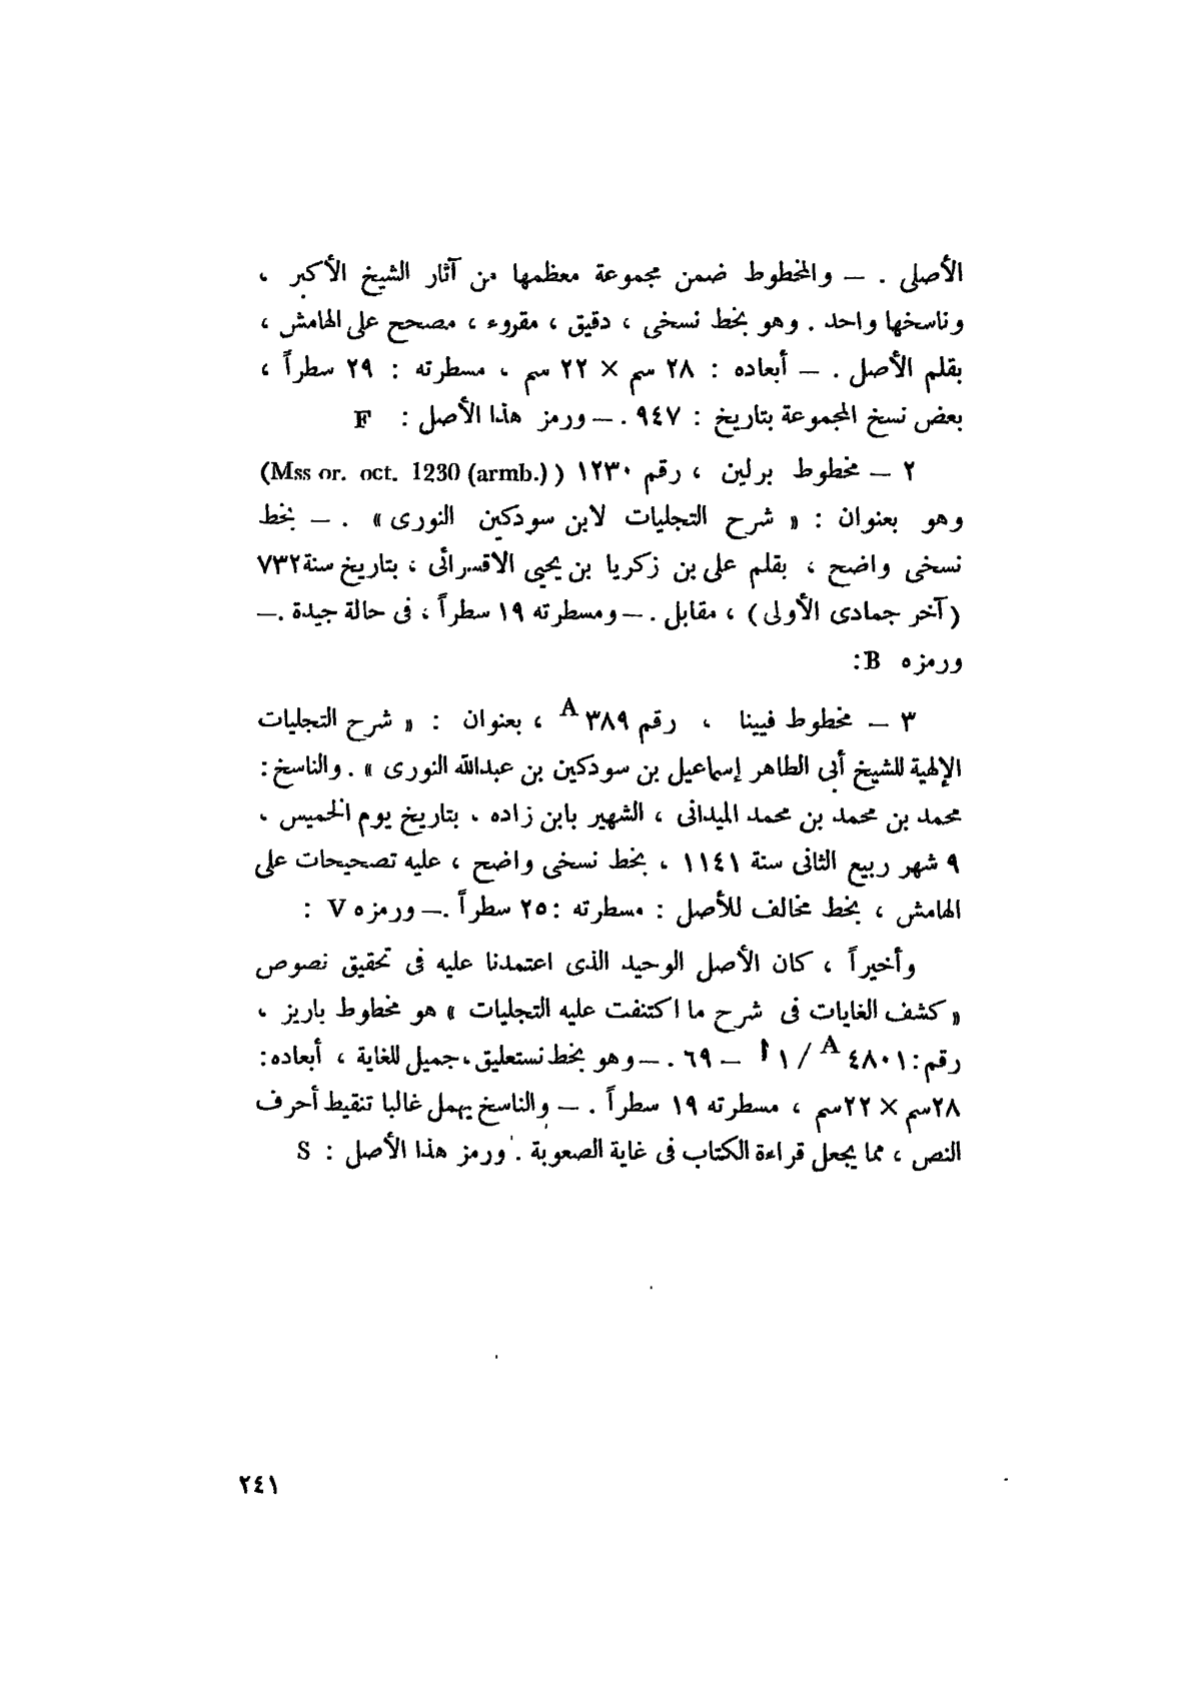 الأصلى . — والمخطوط ضمن مجموعة معظمها من آثار الشيخ الأكبر ،
وناسخها واحد . وهو بخط نسخى ، دقيق ، مقروء ، مصحح على الهامش ،
بقلم الأصل . — أبعاده : ٢٨ سم × ٢٢ سم ، مسطرته : ٢٩ سطراً ،
بعض نسخ المجموعة بتاريخ : ٩٤٧ . — ورمز هذا الأصل : F
٢ — مخطوط برلين ، رقم ١٢٣٠ ( (Mss or. oct. 1230 (armb.)
وهو بعنوان : « شرح التجليات لابن سودكين النورى » . — بخط
نسخى واضح ، بقلم على بن زكريا بن يحيى الاقسرائى ، بتاريخ سنة ٧٣٢
(آخر جمادى الأولى) ، مقابل . — ومسطرته ١٩ سطراً ، فى حالة جيدة . —
ورمزه B:
٣ — مخطوط فيينا ، رقم ٣٨٩ A ، بعنوان : « شرح التجليات
الإلهية للشيخ أبى الطاهر إسماعيل بن سودكين بن عبدالله النورى » . والناسخ :
محمد بن محمد بن محمد الميدانى ، الشهير بابن زاده ، بتاريخ يوم الخميس ،
٩ شهر ربيع الثانى سنة ١١٤١ ، بخط نسخى واضح ، عليه تصحيحات على
الهامش ، بخط مخالف للأصل : مسطرته : ٢٥ سطراً . — ورمزه V :
وأخيراً ، كان الأصل الوحيد الذى اعتمدنا عليه فى تحقيق نصوص
« كشف الغايات فى شرح ما اكتنفت عليه التجليات » هو مخطوط باريز ،
رقم : ٤٨٠١ A / ١ أ — ٦٩ . — وهو بخط نستعليق ، جميل للغاية ، أبعاده :
٢٨سم × ٢٢سم ، مسطرته ١٩ سطراً . — والناسخ يهمل غالبا تنقيط أحرف
النص ، مما يجعل قراءة الكتاب فى غاية الصعوبة . ورمز هذا الأصل : S
٢٤١